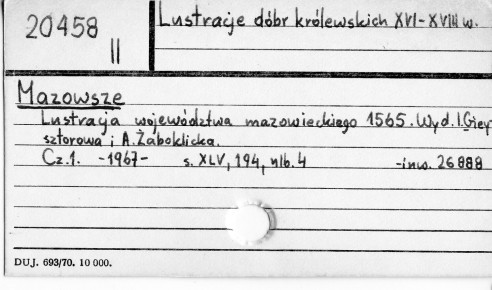 20458
II
Lustracje dóbr królewskich XVI-XVIII w.
Mazowsze
Lustracja województwa mazowieckiego 1565. Wyd. I. Giey
sztorowa i A. Żaboklicka.
Cz.1. -1967- s. XLV, 194, nlb. 4 -inw. 26888
DUJ. 693/70. 10 000.